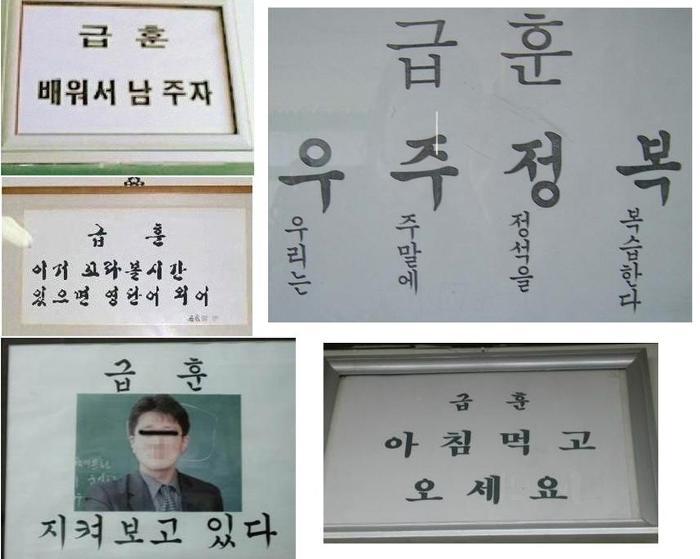 급 훈
배워서 남 주자
급 훈
우 주 정 복
우리는
주말에
정석을
복습한다
급 훈
이거 꼬라볼시간
있으면 영단어 외어
급 훈
지켜보고 있다
급 훈
아침먹고
오세요